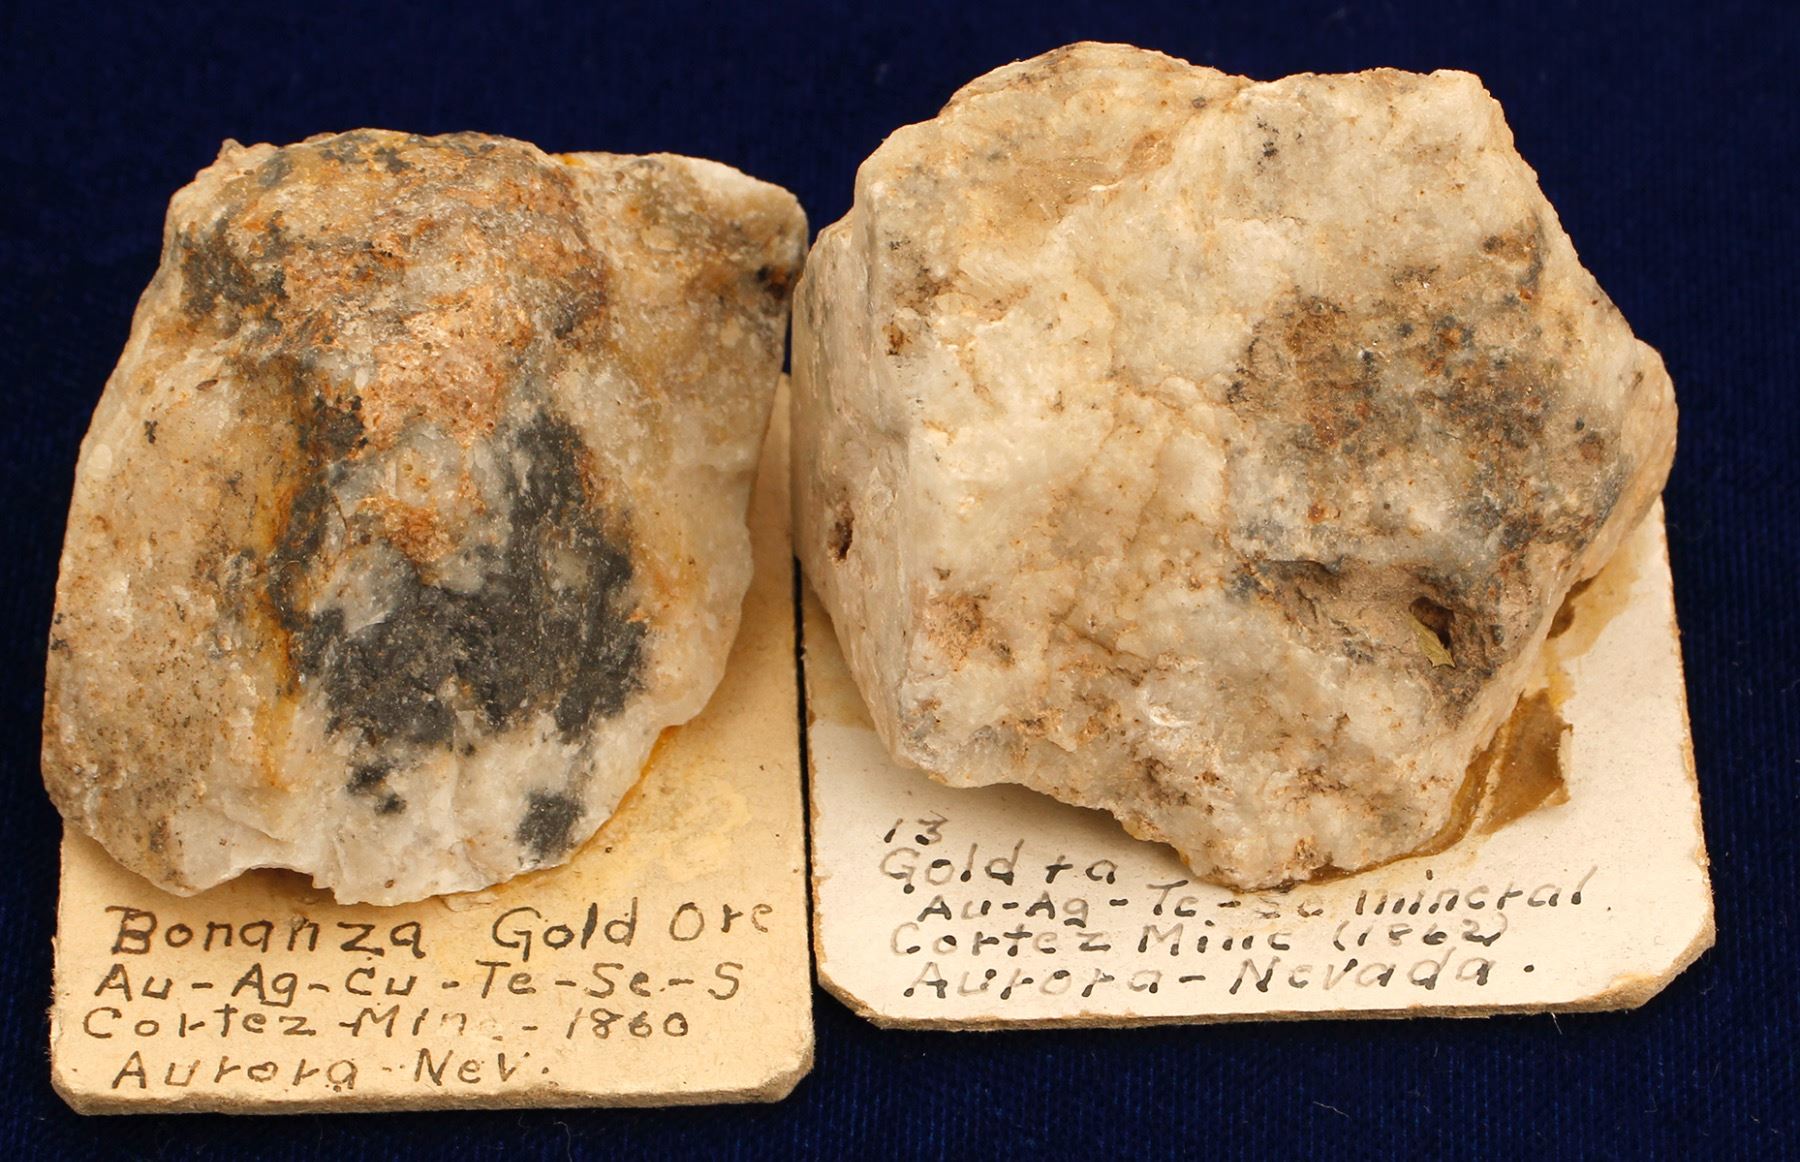 Bonanza Gold Ore
Au-Ag-Cu-Te-Se-S
Cortez Mine - 1860
Aurora - Nev.
13
Gold + a
Au-Ag-Te-Se mineral
Cortez Mine (1862)
Aurora - Nevada.